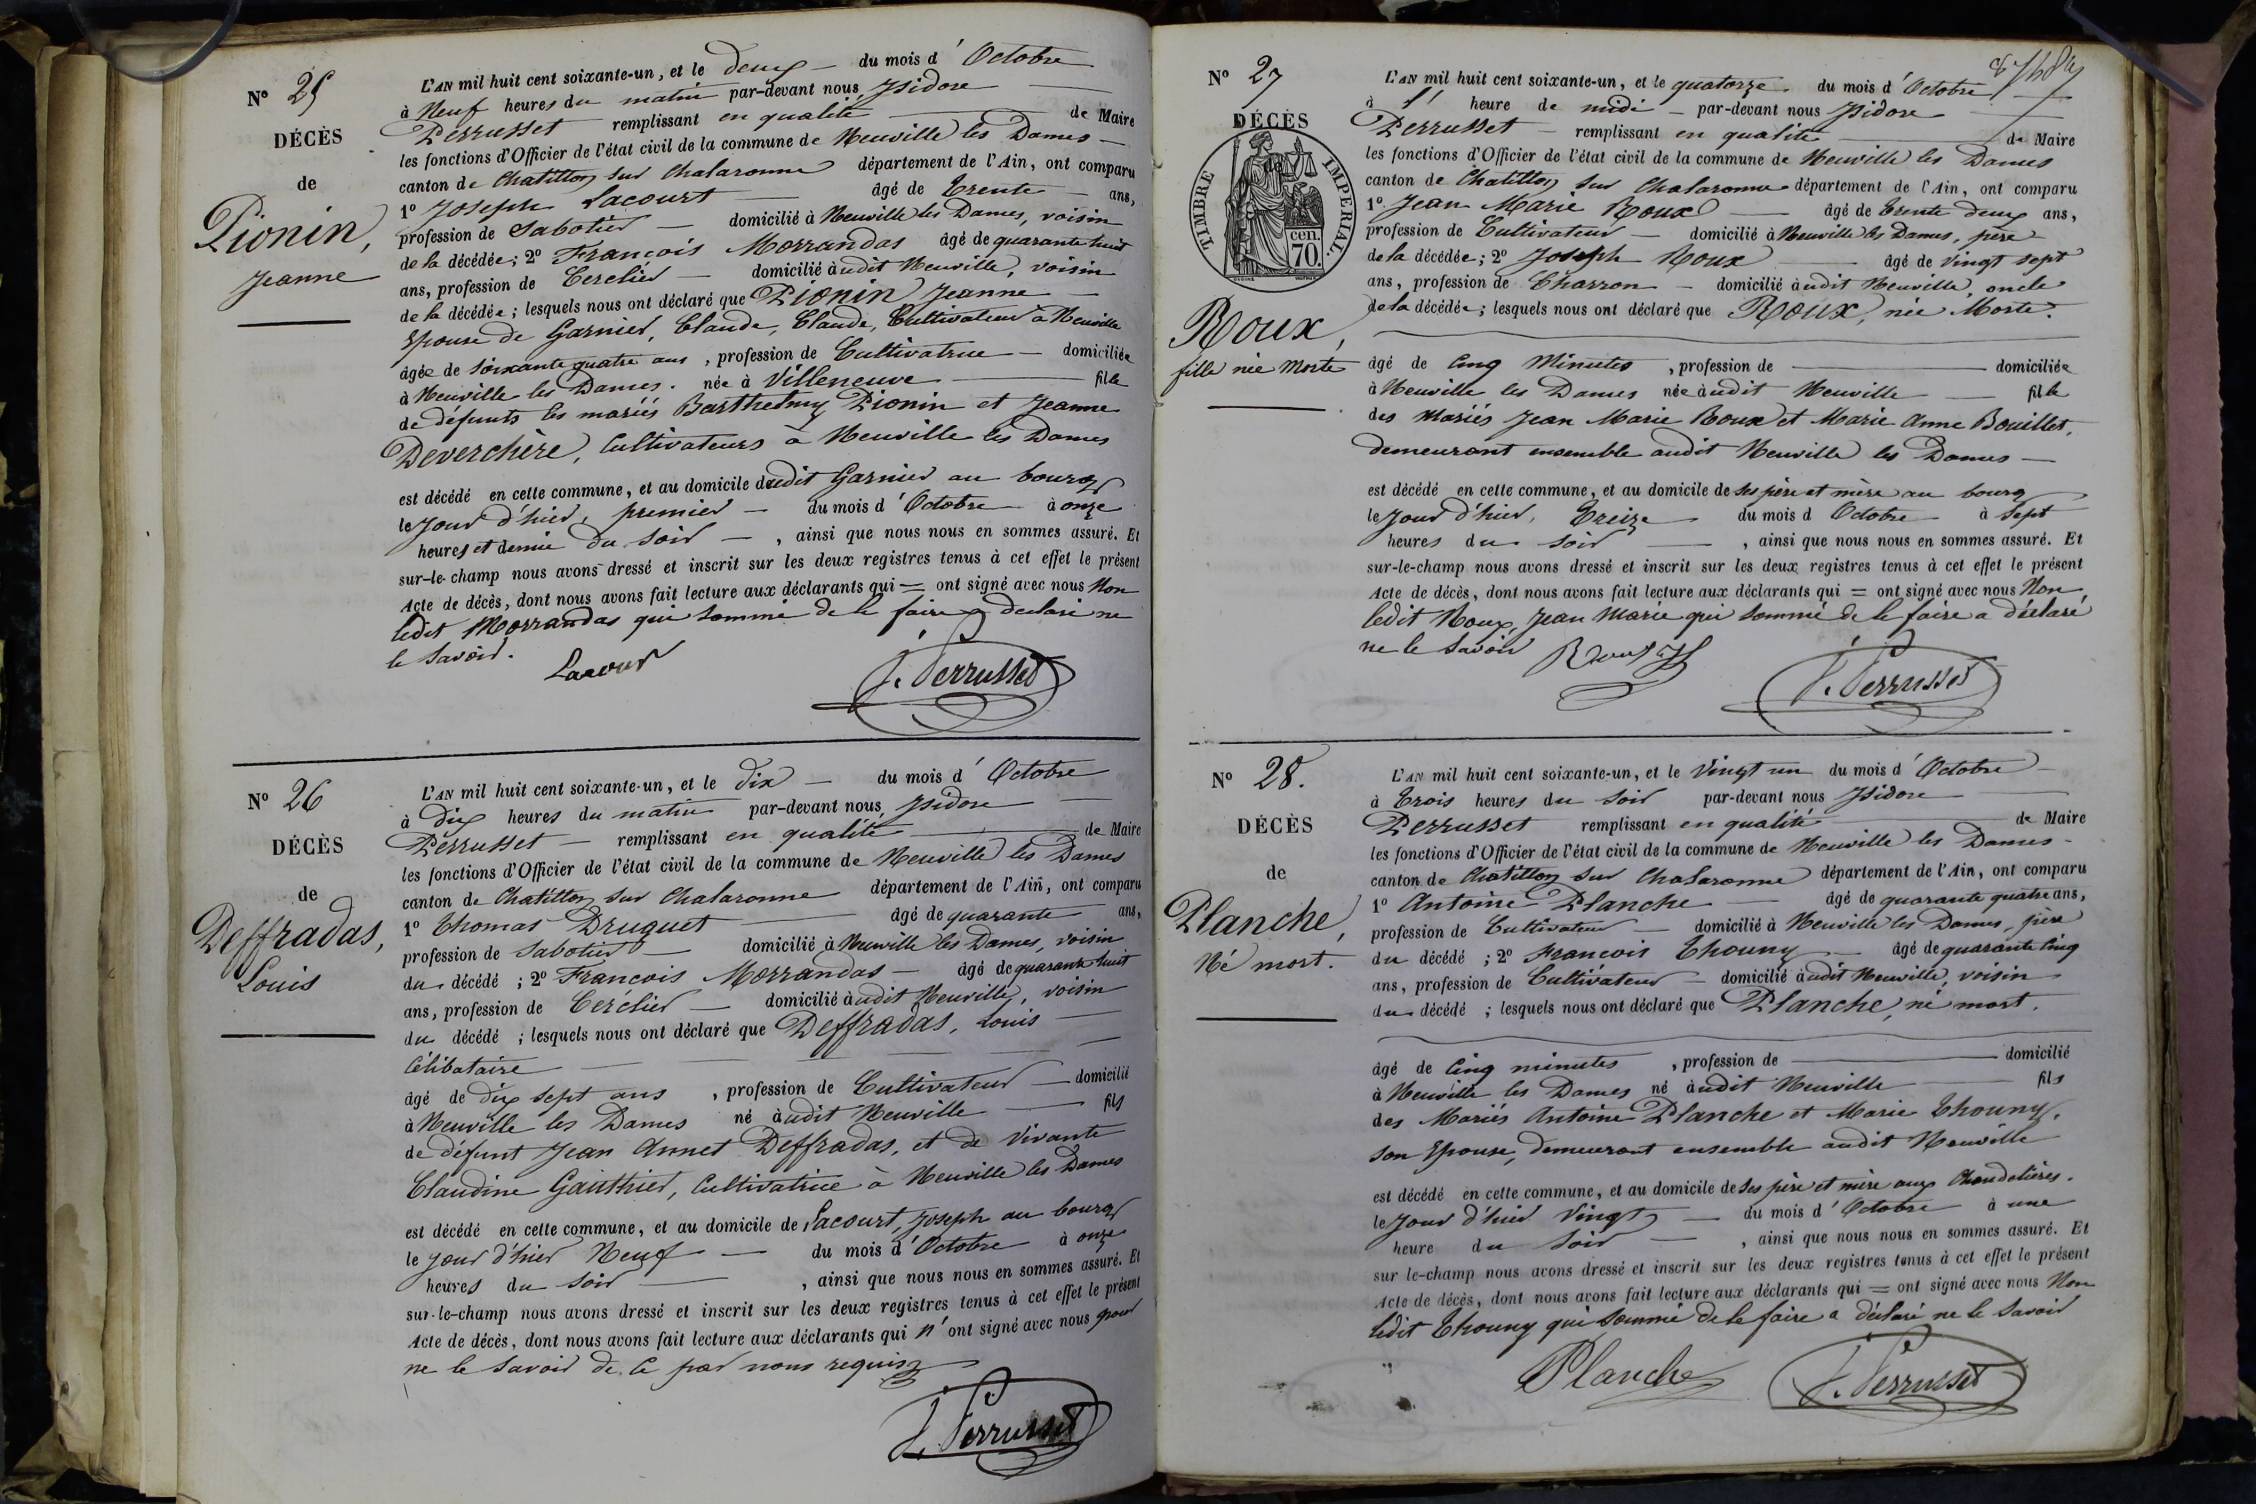 N° 25
DÉCÈS
de
Pionin,
Jeanne
L'AN mil huit cent soixante-un, et le deux du mois d'Octobre
à Neuf heures du matin par-devant nous Isidore
Perrusset remplissant en qualité de Maire
les fonctions d'Officier de l'état civil de la commune de Neuville les Dames
canton de Chatillon sur Chalaronne département de l'Ain, ont comparu
1° Joseph Lacourt âgé de trente ans,
profession de Sabotier domicilié à Neuville les Dames, voisin
de la décédée; 2° François Morrandas âgé de quarante huit
ans, profession de Cerclier domicilié audit Neuville, voisin
de la décédée; lesquels nous ont déclaré que Pionin Jeanne
Epouse de Garnier, Claude, Claude, Cultivateur à Neuville
âgée de soixante quatre ans, profession de Cultivatrice domiciliée
à Neuville les Dames. née à Villeneuve fille
de défunts les mariés Barthelmy Pionin et Jeanne
Deverchère, Cultivateurs à Neuville les Dames
est décédé en cette commune, et au domicile dudit Garnier au bourg
le jour d'hier, premier du mois d'Octobre à onze
heures et demie du soir, ainsi que nous nous en sommes assuré. Et
sur-le-champ nous avons dressé et inscrit sur les deux registres tenus à cet effet le présent
Acte de décès, dont nous avons fait lecture aux déclarants qui = ont signé avec nous Non
ledit Morrandas qui sommé de le faire a déclaré ne
le savoir.
Lacour I. Perrusset
N° 26
DÉCÈS
de
Deffradas,
Louis
L'AN mil huit cent soixante-un, et le dix du mois d'Octobre
à dix heures du matin par-devant nous Isidore
Perrusset remplissant en qualité de Maire
les fonctions d'Officier de l'état civil de la commune de Neuville les Dames
canton de Chatillon sur Chalaronne département de l'Ain, ont comparu
1° Thomas Druguet âgé de quarante ans,
profession de Sabotier domicilié à Neuville les Dames, voisin
du décédé; 2° François Morrandas âgé de quarante huit
ans, profession de Cerclier domicilié audit Neuville, voisin
du décédé; lesquels nous ont déclaré que Deffradas, Louis
Célibataire
âgé de dix sept ans, profession de Cultivateur domicilié
à Neuville les Dames né audit Neuville fils
de défunt Jean Annet Deffradas, et de vivante
Claudine Gauthier, Cultivatrice à Neuville les Dames
est décédé en cette commune, et au domicile de Lacourt, Joseph au bourg
le jour d'hier Neuf du mois d'Octobre à onze
heures du soir, ainsi que nous nous en sommes assuré. Et
sur-le-champ nous avons dressé et inscrit sur les deux registres tenus à cet effet le présent
Acte de décès, dont nous avons fait lecture aux déclarants qui n'ont signé avec nous pour
ne le savoir de ce par nous requis
I. Perrusset
N° 27
DÉCÈS
TIMBRE IMPERIAL.
70. cen.
Roux,
fille née morte
L'AN mil huit cent soixante-un, et le quatorze du mois d'Octobre
à l' heure de midi par-devant nous Isidore
Perrusset remplissant en qualité de Maire
les fonctions d'Officier de l'état civil de la commune de Neuville les Dames
canton de Chatillon sur Chalaronne département de l'Ain, ont comparu
1° Jean Marie Roux âgé de trente deux ans,
profession de Cultivateur domicilié à Neuville les Dames, père
de la décédée; 2° Joseph Roux âgé de vingt sept
ans, profession de Charron domicilié audit Neuville, oncle
de la décédée; lesquels nous ont déclaré que Roux, née Morte.
âgé de Cinq Minutes, profession de domiciliée
à Neuville les Dames née audit Neuville fille
des mariés Jean Marie Roux et Marie Anne Bouillet,
demeurant ensemble audit Neuville les Dames
est décédé en cette commune, et au domicile de ses père et mère au bourg
le jour d'hier, Treize du mois d Octobre à Sept
heures du soir, ainsi que nous nous en sommes assuré. Et
sur-le-champ nous avons dressé et inscrit sur les deux registres tenus à cet effet le présent
Acte de décès, dont nous avons fait lecture aux déclarants qui = ont signé avec nous Non
ledit Roux, Jean Marie qui sommé de le faire a déclaré
ne le savoir
I. Perrusset
N° 28.
DÉCÈS
de
Planche,
Né mort.
L'AN mil huit cent soixante-un, et le vingt un du mois d'Octobre
à Trois heures du soir par-devant nous Isidore
Perrusset remplissant en qualité de Maire
les fonctions d'Officier de l'état civil de la commune de Neuville les Dames
canton de Chatillon sur Chalaronne département de l'Ain, ont comparu
1° Antoine Planche âgé de quarante quatre ans,
profession de Cultivateur domicilié à Neuville les Dames, père
du décédé; 2° François Thouny âgé de quarante cinq
ans, profession de Cultivateur domicilié audit Neuville, voisin
du décédé; lesquels nous ont déclaré que Planche, né mort.
âgé de Cinq minutes, profession de domicilié
à Neuville les Dames né audit Neuville fils
des Mariés Antoine Planche et Marie Thouny,
son Epouse, demeurant ensemble audit Neuville
est décédé en cette commune, et au domicile de ses père et mère aux Chandelières.
le jour d'hier Vingt du mois d'Octobre à une
heure du soir, ainsi que nous nous en sommes assuré. Et
sur le-champ nous avons dressé et inscrit sur les deux registres tenus à cet effet le présent
Acte de décès, dont nous avons fait lecture aux déclarants qui = ont signé avec nous Non
ledit Thouny qui sommé de le faire a déclaré ne le savoir
Planche I. Perrusset